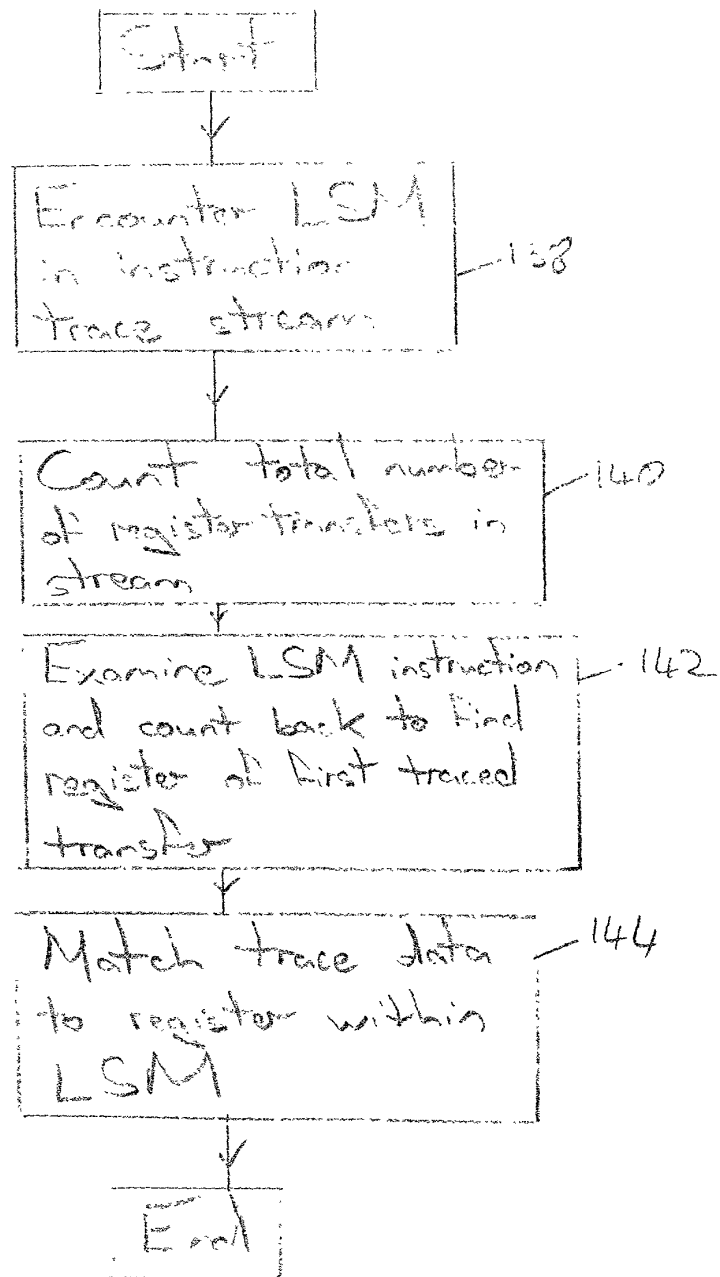 Start
Encounter LSM
in instruction
trace stream
138
Count total number
of register transfers in
stream
140
Examine LSM instruction
and count back to find
register of first traced
transfer
142
Match trace data
to register within
LSM
144
End